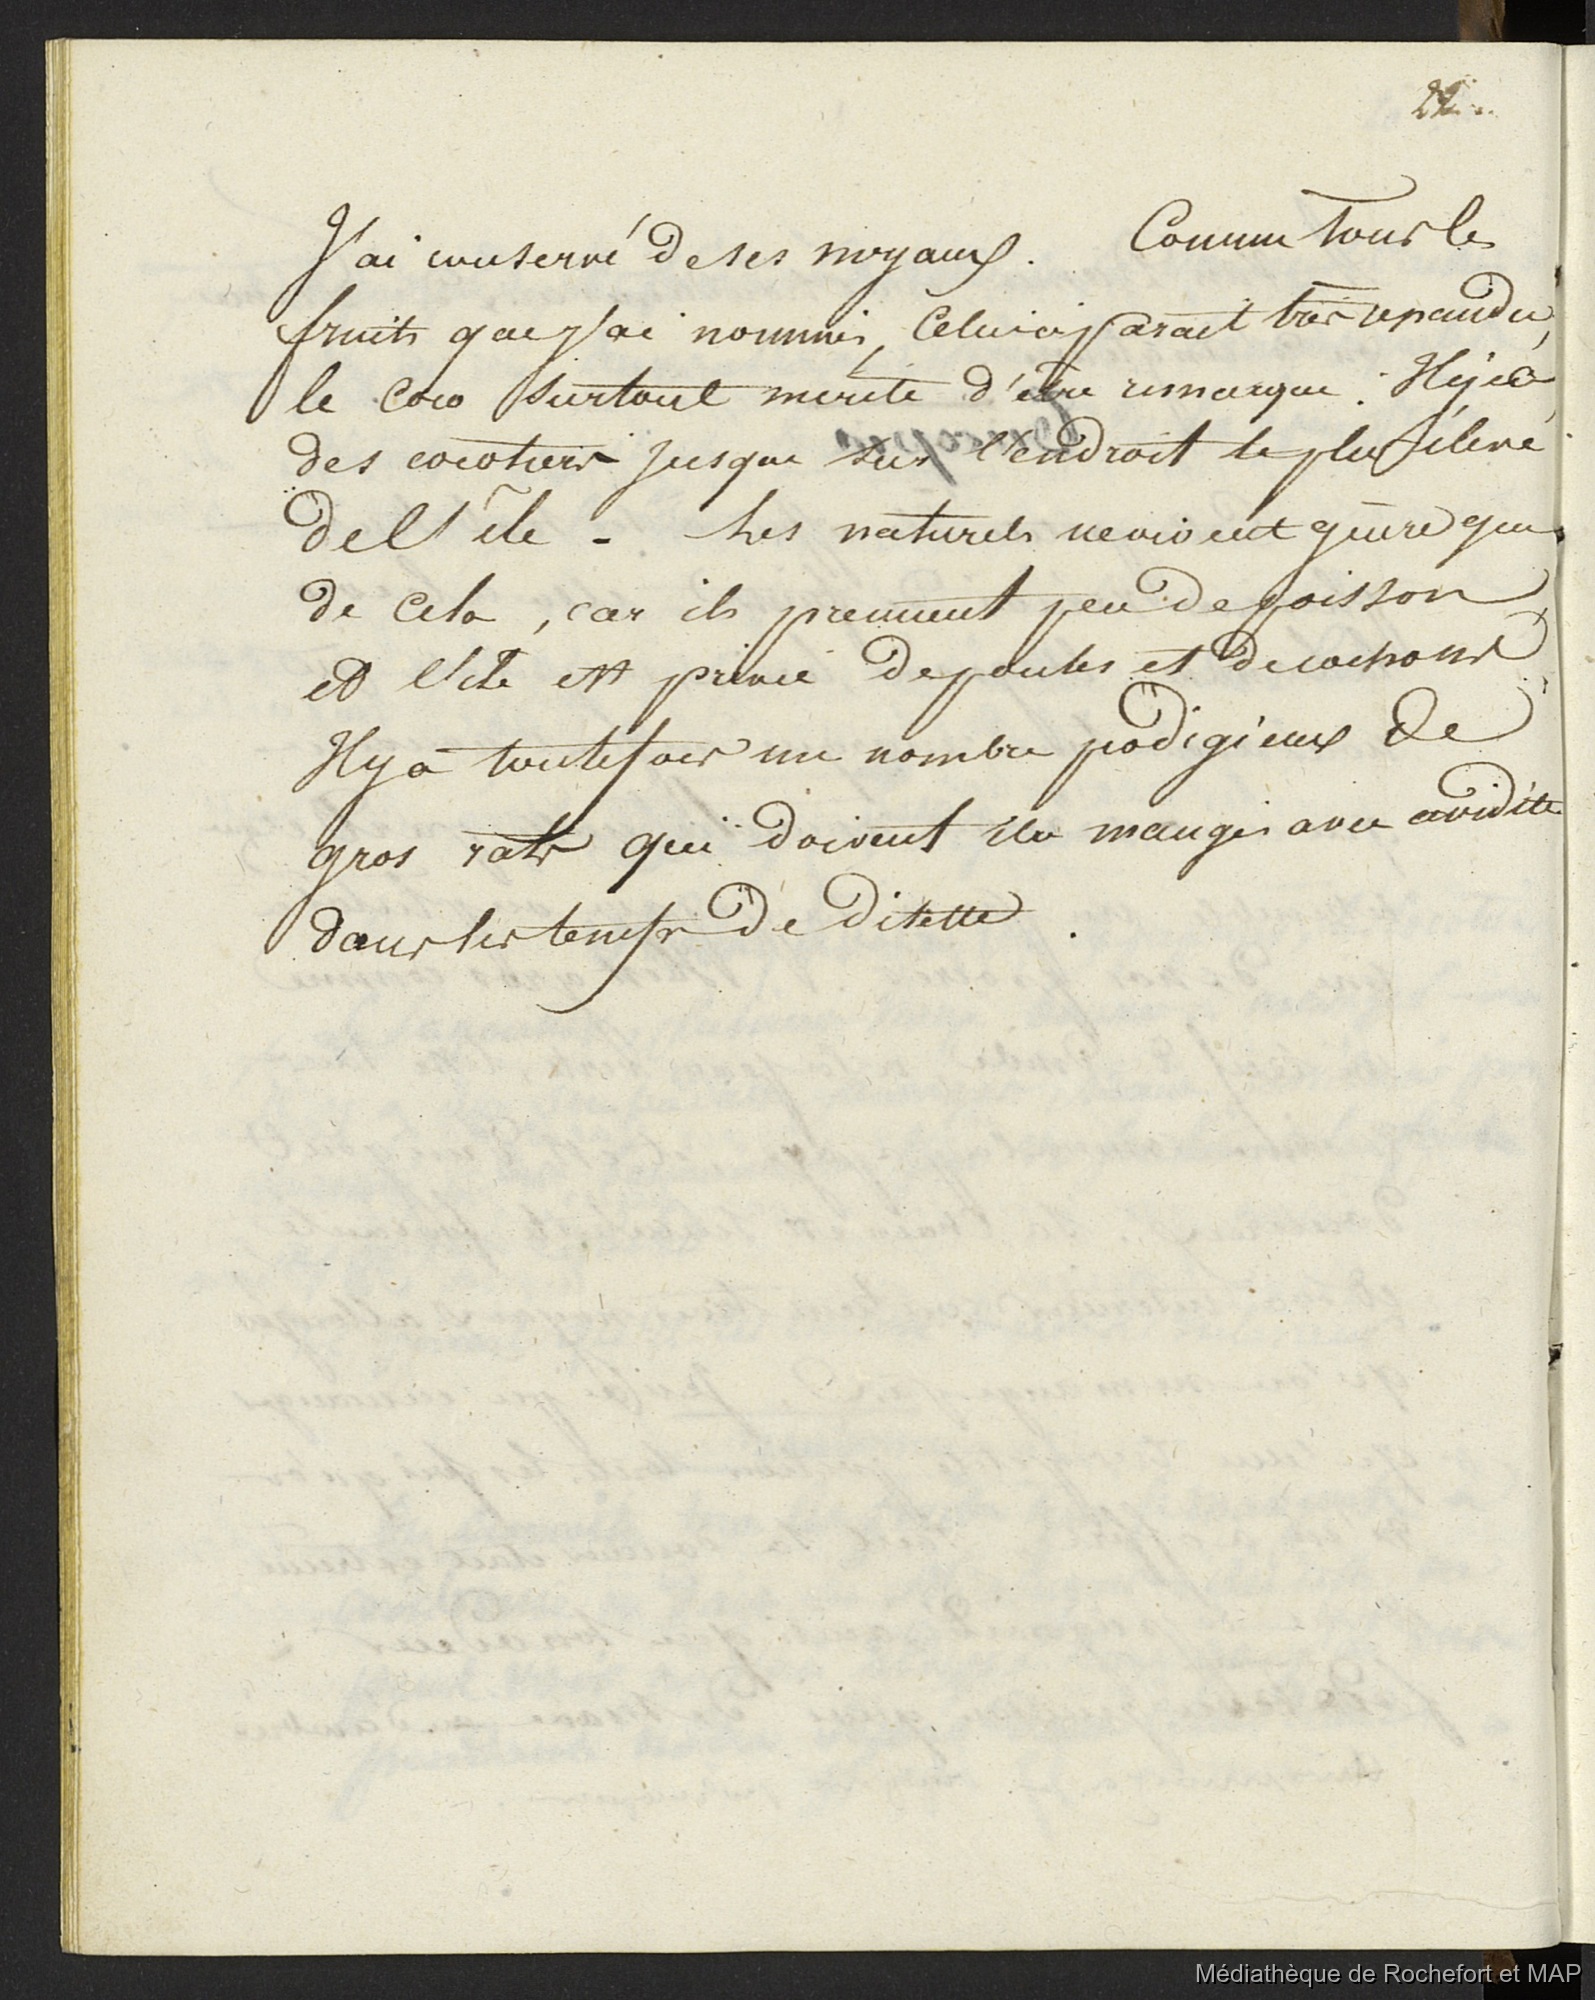 22.
J'ai conservé de ses noyaux. Comme tous les
fruits que j'ai nommés, Celui ci parait très repandu,
le coco surtout merite d'être remarque. Il y a
des cocotiers jusque sur l'endroit le plus élevé
de l'île - Les naturels ne vivent guère que
de cela, car ils prennent peu de poisson
et l'ile est privée de poules et de cochons
Il y a toutefois un nombre podigieux de
gros rats qui doivent se manger avec avidité
dans les temps de disette.
Médiathèque de Rochefort et MAP